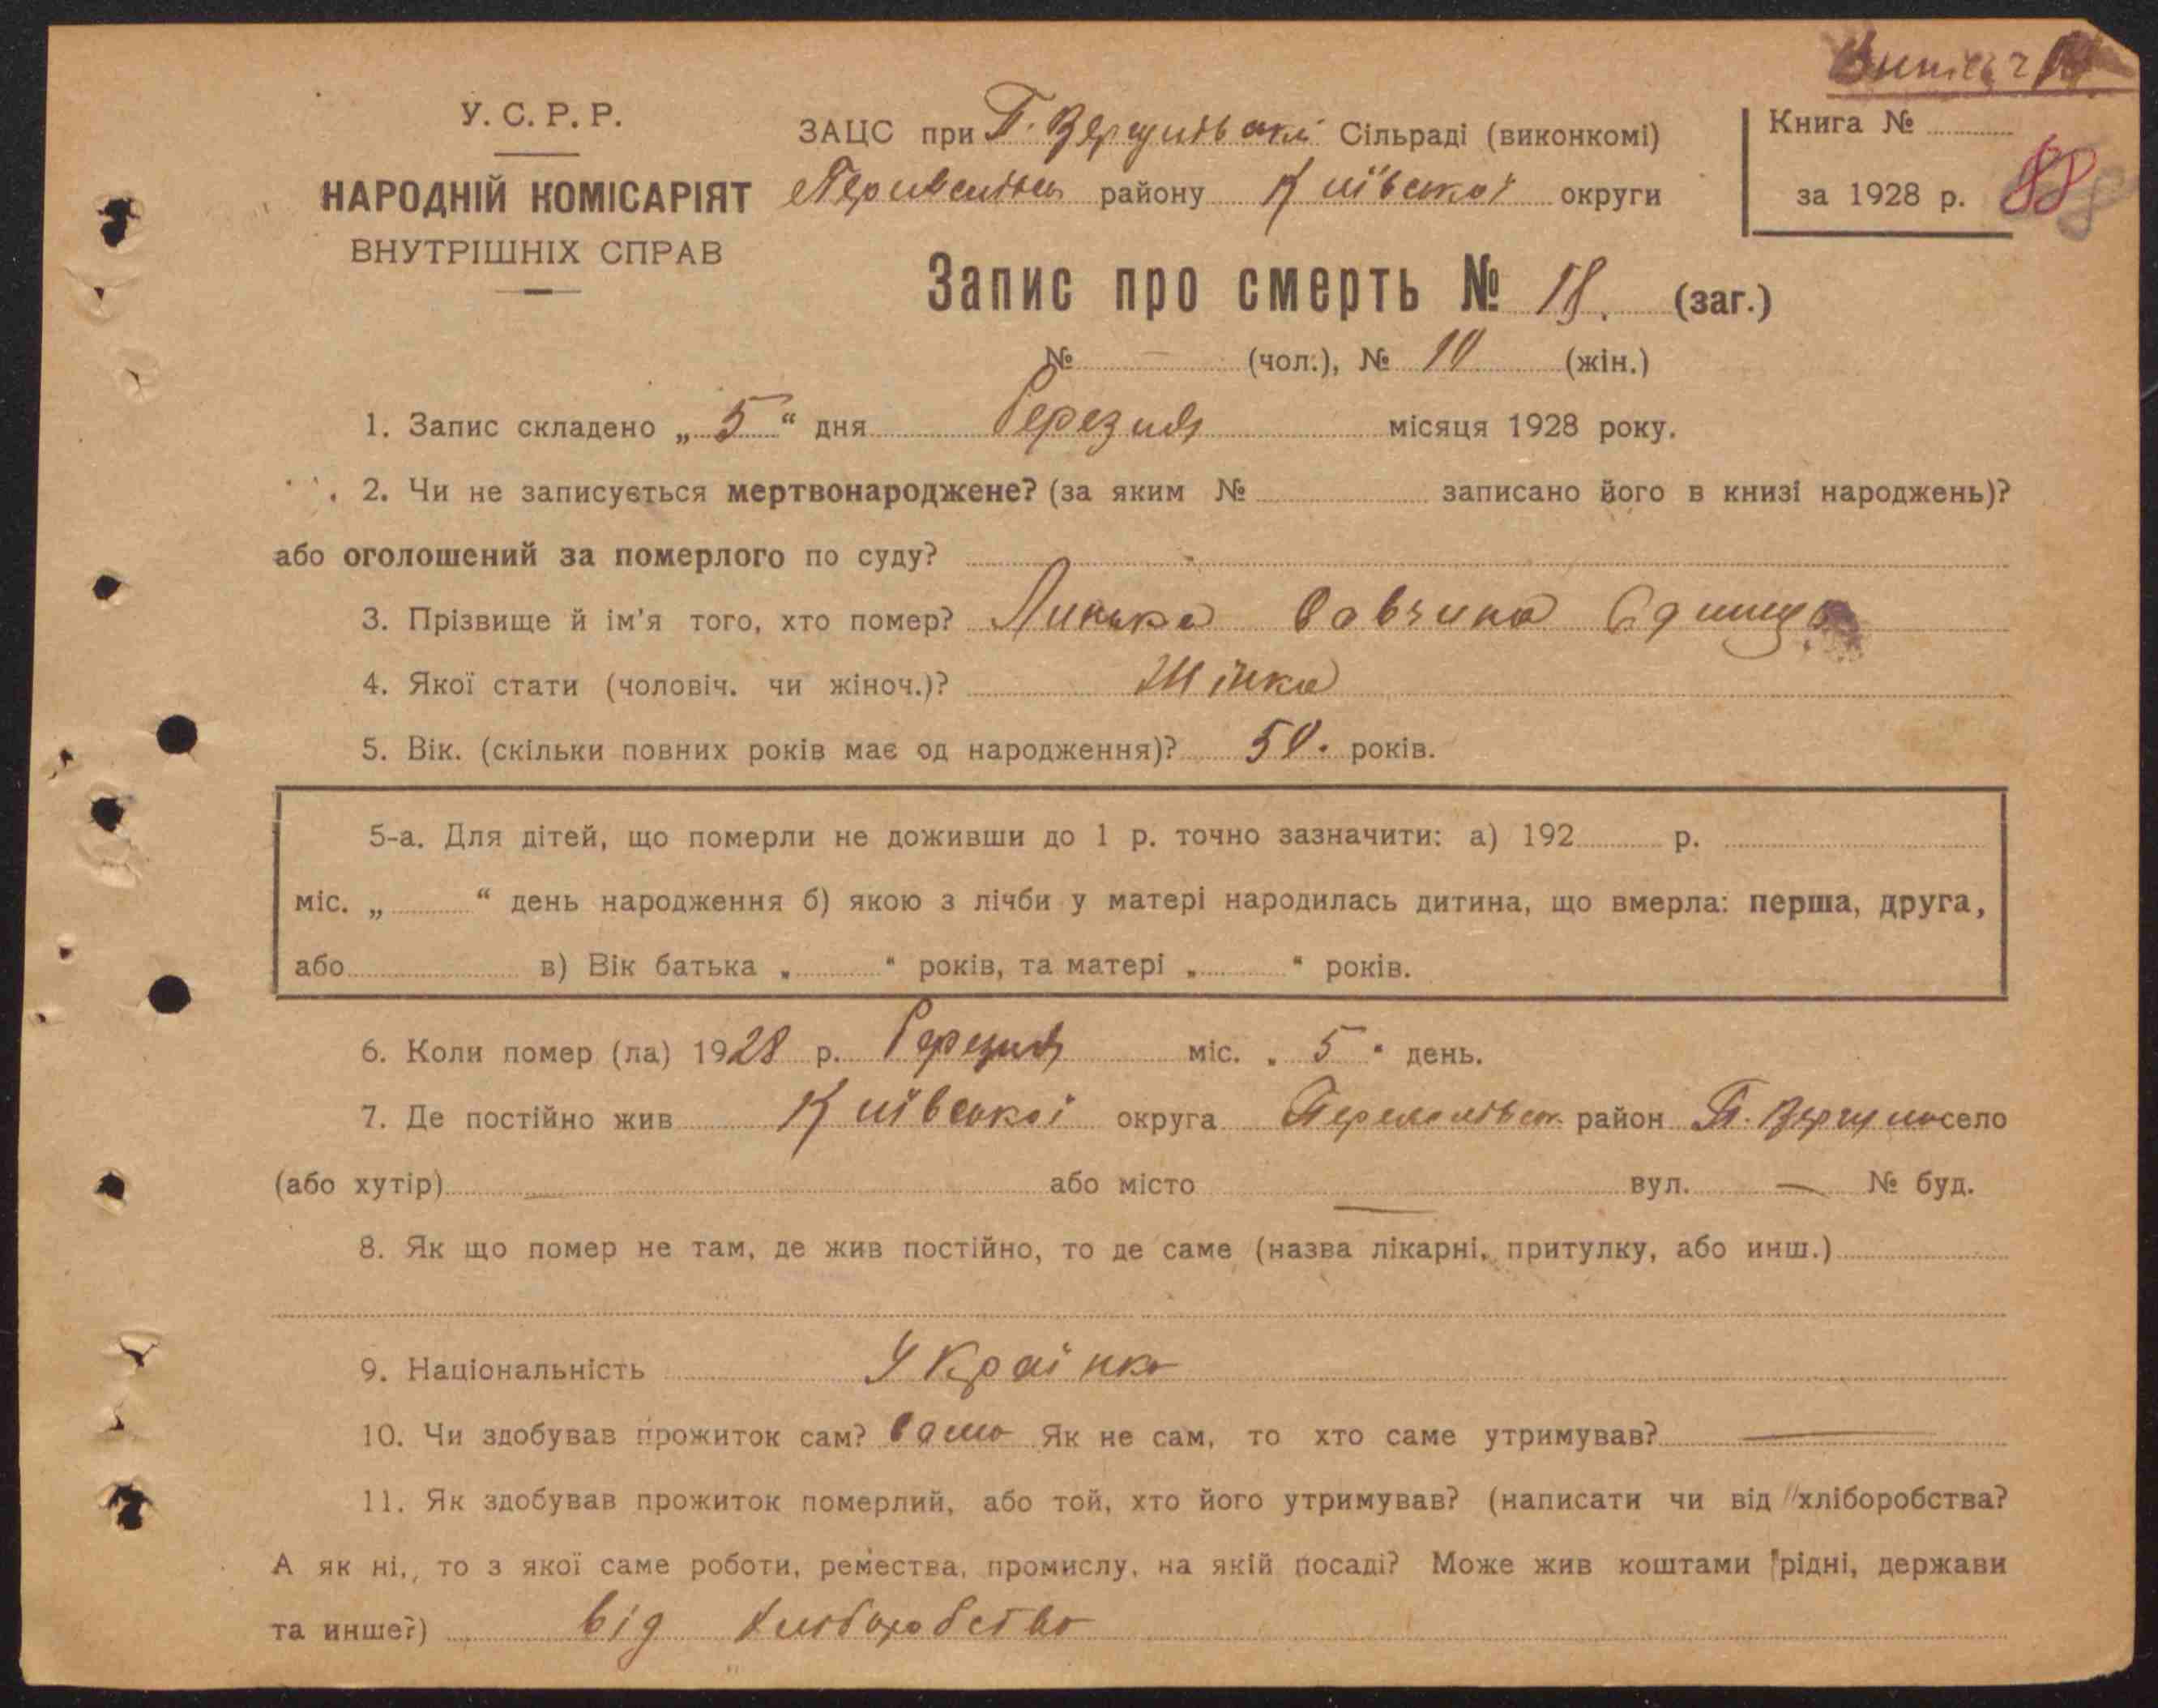 У. С. Р. Р.
НАРОДНІЙ КОМІСАРІЯТ
ВНУТРІШНІХ СПРАВ
ЗАЦС при П. Сільраді (виконкомі)
району Київської округи
Книга №
за 1928 р. 88
Запис про смерть № 18. (заг.)
№ — (чол.), № 10 (жін.)
1. Запис складено „ 5 “ дня Березня місяця 1928 року.
2. Чи не записується мертвонароджене? (за яким № записано його в книзі народжень)?
або оголошений за померлого по суду?
3. Прізвище й ім'я того, хто помер?
4. Якої стати (чоловіч. чи жіноч.)? Жінка
5. Вік. (скільки повних років має од народження)? 50. років.
5-а. Для дітей, що померли не доживши до 1 р. точно зазначити: а) 192 р.
міс. „ “ день народження б) якою з лічби у матері народилась дитина, що вмерла: перша, друга,
або в) Вік батька „ “ років, та матері „ “ років.
6. Коли помер (ла) 1928 р. Березня міс. „ 5 “ день.
7. Де постійно жив Київської округа район П. село
(або хутір) — або місто — вул. — № буд.
8. Як що помер не там, де жив постійно, то де саме (назва лікарні, притулку, або инш.)
9. Національність Українка
10. Чи здобував прожиток сам? сама Як не сам, то хто саме утримував? —
11. Як здобував прожиток померлий, або той, хто його утримував? (написати чи від хліборобства?
А як ні, то з якої саме роботи, ремества, промислу, на якій посаді? Може жив коштами рідні, держави
та инше?) від хліборобства